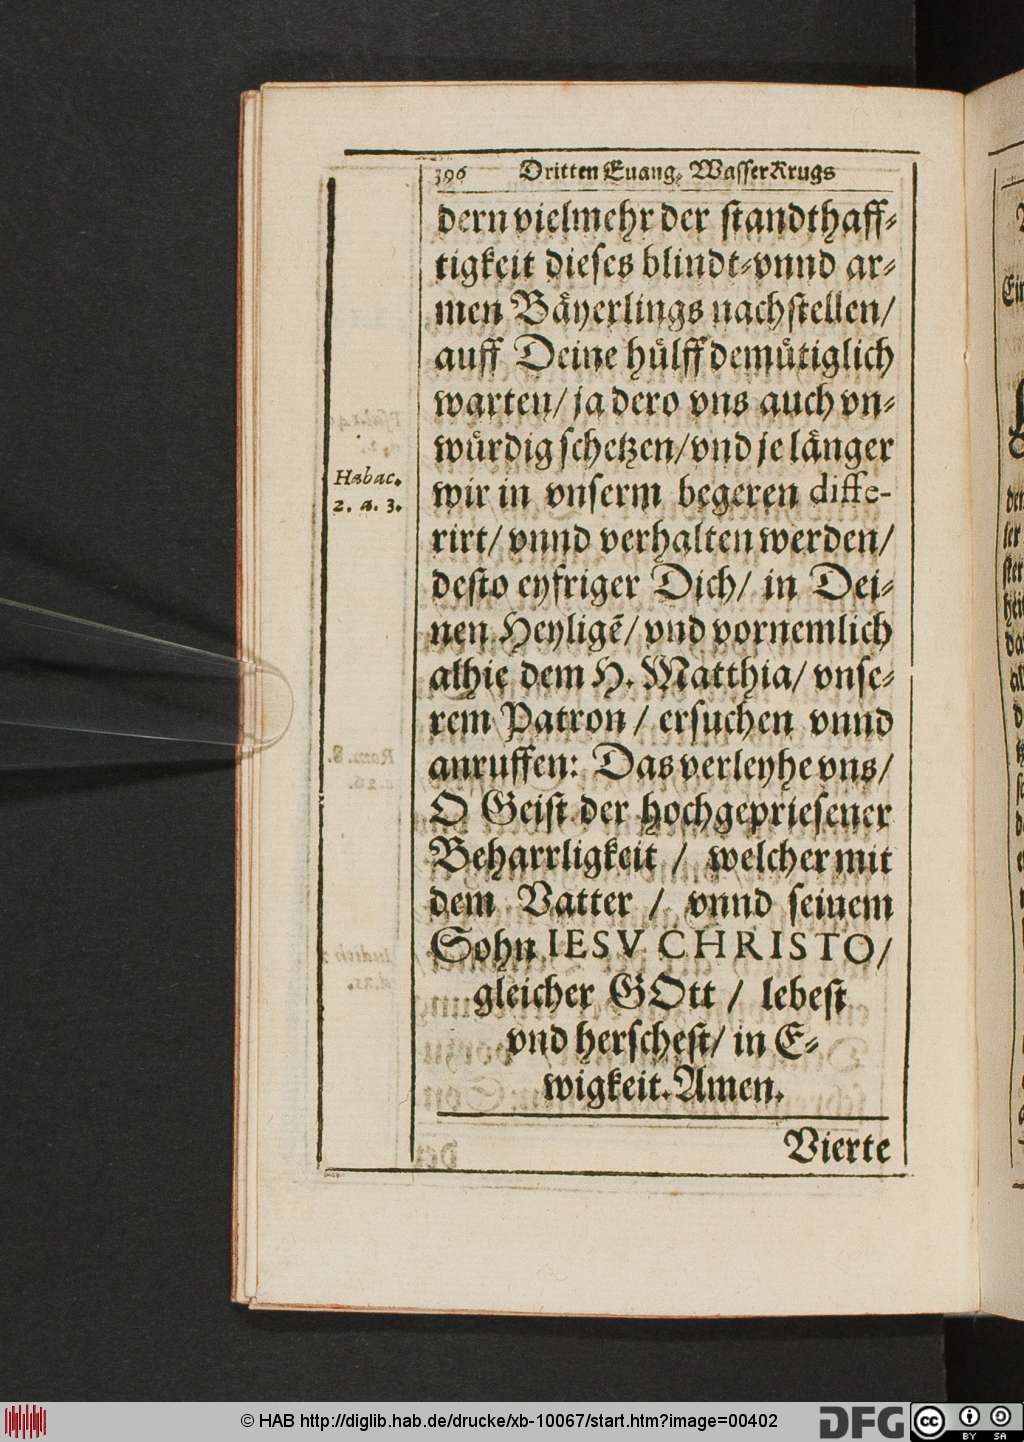 396 Dritten Euang. WasserKrugs
dern vielmehr der standthaff-
tigkeit dieses blindt-vnnd ar-
men Bäyerlings nachstellen/
auff Deine hülff demütiglich
warten/ ja dero vns auch vn-
würdig schetzen/ vnd je länger
Habac.
2. a. 3.
wir in vnserm begeren diffe-
rirt/ vnnd verhalten werden/
desto eyfriger Dich/ in Dei-
nen Heyligẽ/ vnd vornemlich
alhie dem H. Matthia/ vnse-
rem Patron/ ersuchen vnnd
anruffen: Das verleyhe vns/
O Geist der hochgepriesener
Beharrligkeit/ welcher mit
dem Vatter/ vnnd seinem
Sohn IESV CHRISTO/
gleicher GOtt/ lebest
vnd herschest/ in E-
wigkeit. Amen.
Vierte
© HAB http://diglib.hab.de/drucke/xb-10067/start.htm?image=00402
DFG
cc BY SA